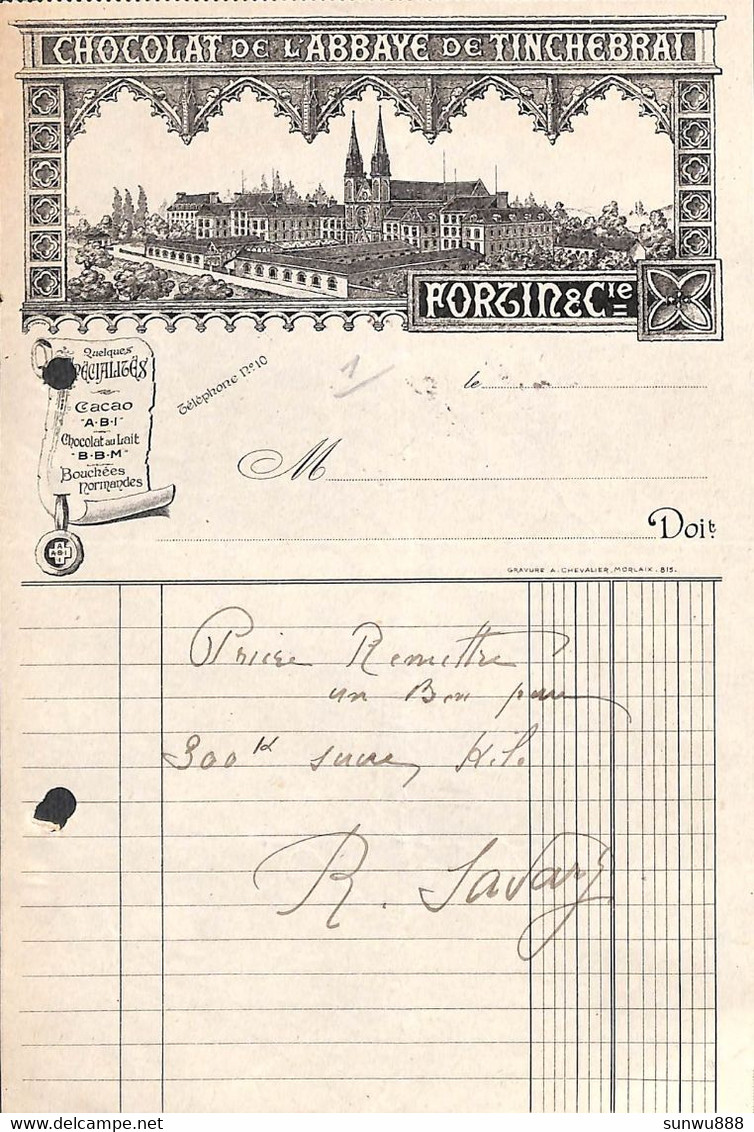 CHOCOLAT DE L'ABBAYE DE TINCHEBRAI
FORTIN & Cie
Quelques
SPÉCIALITÉS
Cacao
"A·B·I"
Chocolat au Lait
"B·B·M"
Bouchées
Normandes
A
ABI
I
Téléphone No 10
1
le
M
Doit
GRAVURE A. CHEVALIER, MORLAIX. 815.
Prière Remettre
un Bon pour
300 k sucre,
R. Savary
sunwu888